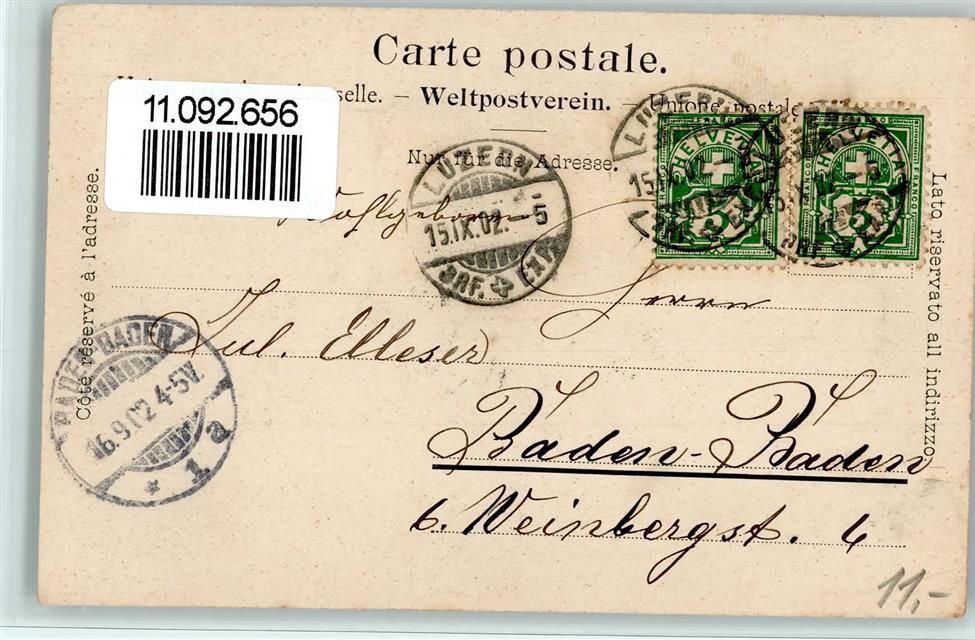 Carte postale.
selle. – Weltpostverein. – Unione postale
11.092.656
Nur für die Adresse.
Côté réservé à l'adresse.
Lato riservato all indirizzo.
LUZERN
15.IX.02. - 5
BRF. EXP.
LUZERN
15.
HELVETIA
FRANCO
5
HELVETIA
FRANCO
5
Herrn
Jul. Elleser
Baden-Baden
6. Weinbergst. 4
BADEN-BADEN
16.9.02 4-5V.
* 1 a
11,-